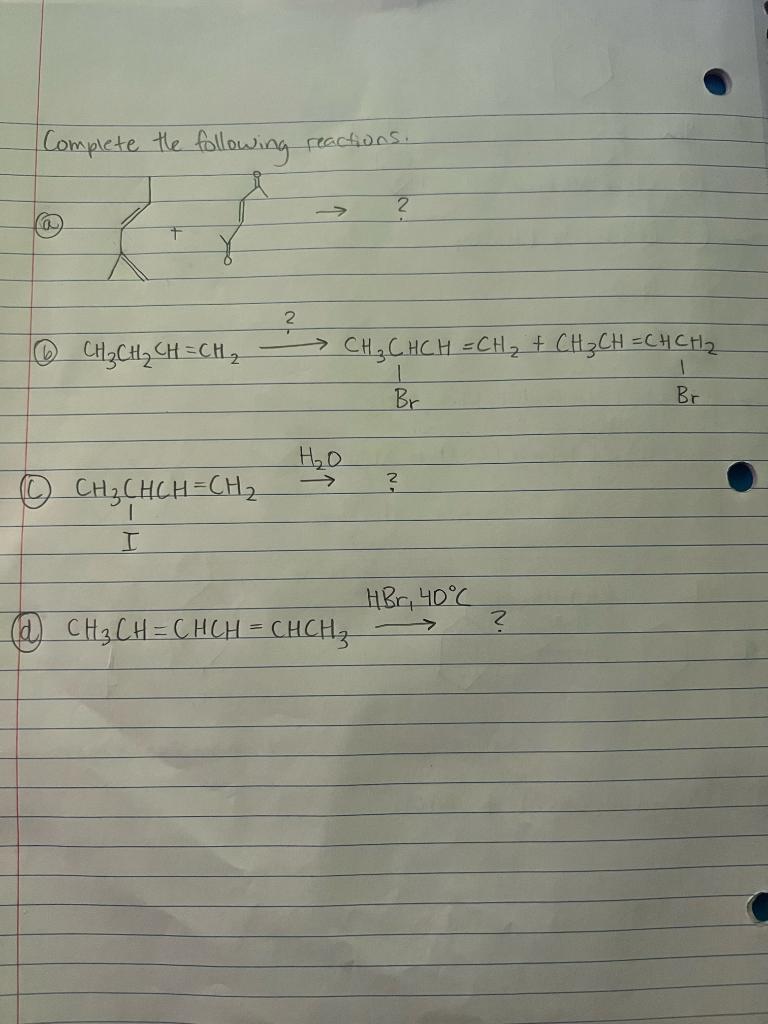 Complete the following reactions.
ⓐ + → ?
O
O
?
ⓑ CH₃CH₂CH=CH₂ → CH₃CHCH=CH₂ + CH₃CH=CHCH₂
Br Br
H₂O
ⓒ CH₃CHCH=CH₂ → ?
I
HBr, 40°C
ⓓ CH₃CH=CHCH=CHCH₃ → ?